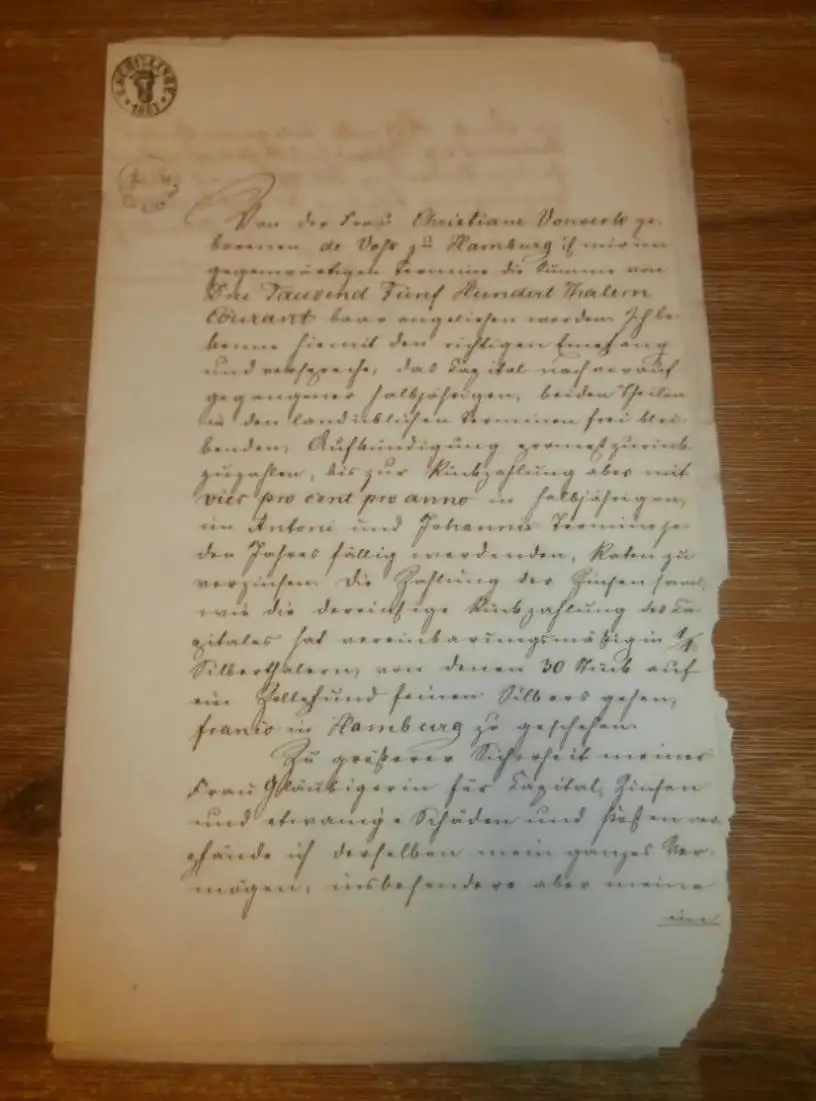 2 SCHILLINGE
1861
Von der Frau Christiane Vorwerk ge-
borenen de Voss zu Hamburg ist mir im
gegenwärtigen Termine die Summe von
Drei Tausend Fünf Hundert Thalern
Courant baar angeliehen worden. Ich be-
kenne hiemit den richtigen Empfang
und verspreche, das Capital nach vorauf
gegangener halbjährigen, beiden Theilen
in den landüblichen Terminen frei blei-
benden, Aufkündigung prompt zurück
zuzahlen, bis zur Rückzahlung aber mit
vier pro cent pro anno in halbjährigen,
im Antoni und Johannis Termine je-
den Jahres fällig werdenden, Raten zu
verzinsen. Die Zahlung der Zinsen sowol,
wie die dereinstige Rückzahlung des Ca-
pitales hat vereinbarungsmäßig in
Silberthalern, von denen 30 Stück auf
ein Zollpfund feinen Silbers gehen,
franco in Hamburg zu geschehen.
Zu größerer Sicherheit meiner
Frau Gläubigerin für Capital, Zinsen
und etwanige Schäden und Kosten ver-
pfände ich derselben mein ganzes Ver-
mögen, insbesondere aber meine